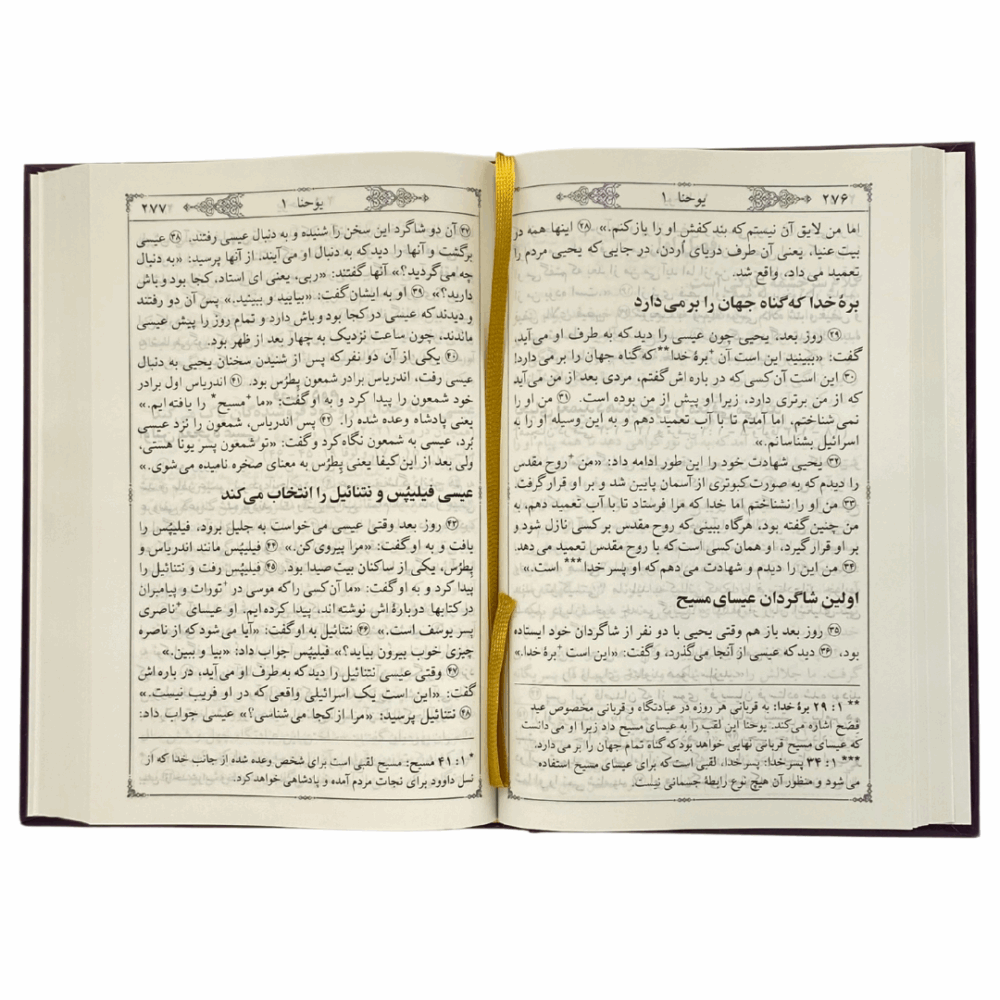 ۲۷۶ یوحنا ۱
اما من لایق آن نیستم که بند کفش او را باز کنم.» ㉘ اینها همه در
بیت عنیا، یعنی آن طرف دریای اُردن، در جایی که یحیی مردم را
تعمید می داد، واقع شد.
برهٔ خدا که گناه جهان را بر می دارد
㉙ روز بعد، یحیی چون عیسی را دید که به طرف او می آید،
گفت: «ببینید این است آن +برهٔ خدا** که گناه جهان را بر می دارد!
㉚ این است آن کسی که در باره اش گفتم، مردی بعد از من می آید
که از من برتری دارد، زیرا او پیش از من بوده است. ㉛ من او را
نمی شناختم، اما آمدم تا با آب تعمید دهم و به این وسیله او را به
اسرائیل بشناسانم.»
㉜ یحیی شهادت خود را این طور ادامه داد: «من +روح مقدس
را دیدم که به صورت کبوتری از آسمان پایین شد و بر او قرار گرفت.
㉝ من او را نشناختم اما خدا که مرا فرستاد تا با آب تعمید دهم، به
من چنین گفته بود، هرگاه ببینی که روح مقدس بر کسی نازل شود و
بر او قرار گیرد، او همان کسی است که با روح مقدس تعمید می دهد.
㉞ من این را دیدم و شهادت می دهم که او پسر خدا*** است.»
اولین شاگردان عیسای مسیح
㉟ روز بعد باز هم وقتی یحیی با دو نفر از شاگردان خود ایستاده
بود، ㊱ دید که عیسی از آنجا می‌گذرد، و گفت: «این است +برهٔ خدا.»
** ۱: ۲۹ برهٔ خدا: به قربانی هر روزه در عبادتگاه و قربانی مخصوص عید
فِصَح اشاره می‌کند. یوحنا این لقب را به عیسای مسیح داد زیرا او می دانست
که عیسای مسیح قربانی نهایی خواهد بود که گناه تمام جهان را بر می دارد.
*** ۱: ۳۴ پسر خدا: پسر خدا، لقبی است که برای عیسای مسیح استفاده
می شود و منظور آن هیچ نوع رابطهٔ جسمانی نیست.
یوحنا ۱ ۲۷۷
㊲ آن دو شاگرد این سخن را شنیده و به دنبال عیسی رفتند. ㊳ عیسی
برگشت و آنها را دید که به دنبال او می آیند. از آنها پرسید: «به دنبال
چه می گردید؟» آنها گفتند: «ربی، یعنی ای استاد، کجا بود و باش
دارید؟» ㊴ او به ایشان گفت: «بیایید و ببینید.» پس آن دو رفتند
و دیدند که عیسی در کجا بود و باش دارد و تمام روز را پیش عیسی
ماندند، چون ساعت نزدیک به چهار بعد از ظهر بود.
㊵ یکی از آن دو نفر که پس از شنیدن سخنان یحیی به دنبال
عیسی رفت، اندریاس برادر شمعون پِطرُس بود. ㊶ اندریاس اول برادر
خود شمعون را پیدا کرد و به او گفت: «ما +مسیح* را یافته ایم.»
یعنی پادشاه وعده شده را. ㊷ پس اندریاس، شمعون را نزد عیسی
بُرد، عیسی به شمعون نگاه کرد و گفت: «تو شمعون پسر یونا هستی،
ولی بعد از این کیفا یعنی پِطرُس به معنای صخره نامیده می شوی.»
عیسی فیلیپُس و نتنائیل را انتخاب می کند
㊸ روز بعد وقتی عیسی می خواست به جلیل برود، فیلیپُس را
یافت و به او گفت: «مرا پیروی کن.» ㊹ فیلیپُس مانند اندریاس و
پِطرُس، یکی از ساکنان بیت صیدا بود. ㊺ فیلیپُس رفت و نتنائیل را
پیدا کرد و به او گفت: «ما آن کسی را که موسی در +تورات و پیامبران
در کتابها دربارهٔ اش نوشته اند، پیدا کرده ایم. او عیسای +ناصری
پسر یوسف است.» ㊻ نتنائیل به او گفت: «آیا می شود که از ناصره
چیزی خوب بیرون بیاید؟» فیلیپُس جواب داد: «بیا و ببین.»
㊼ وقتی عیسی نتنائیل را دید که به طرف او می آید، در باره اش
گفت: «این است یک اسرائیلی واقعی که در او فریب نیست.»
㊽ نتنائیل پرسید: «مرا از کجا می شناسی؟» عیسی جواب داد:
* ۱: ۴۱ مسیح: مسیح لقبی است برای شخص وعده شده از جانب خدا که از
نسل داوود برای نجات مردم آمده و پادشاهی خواهد کرد.